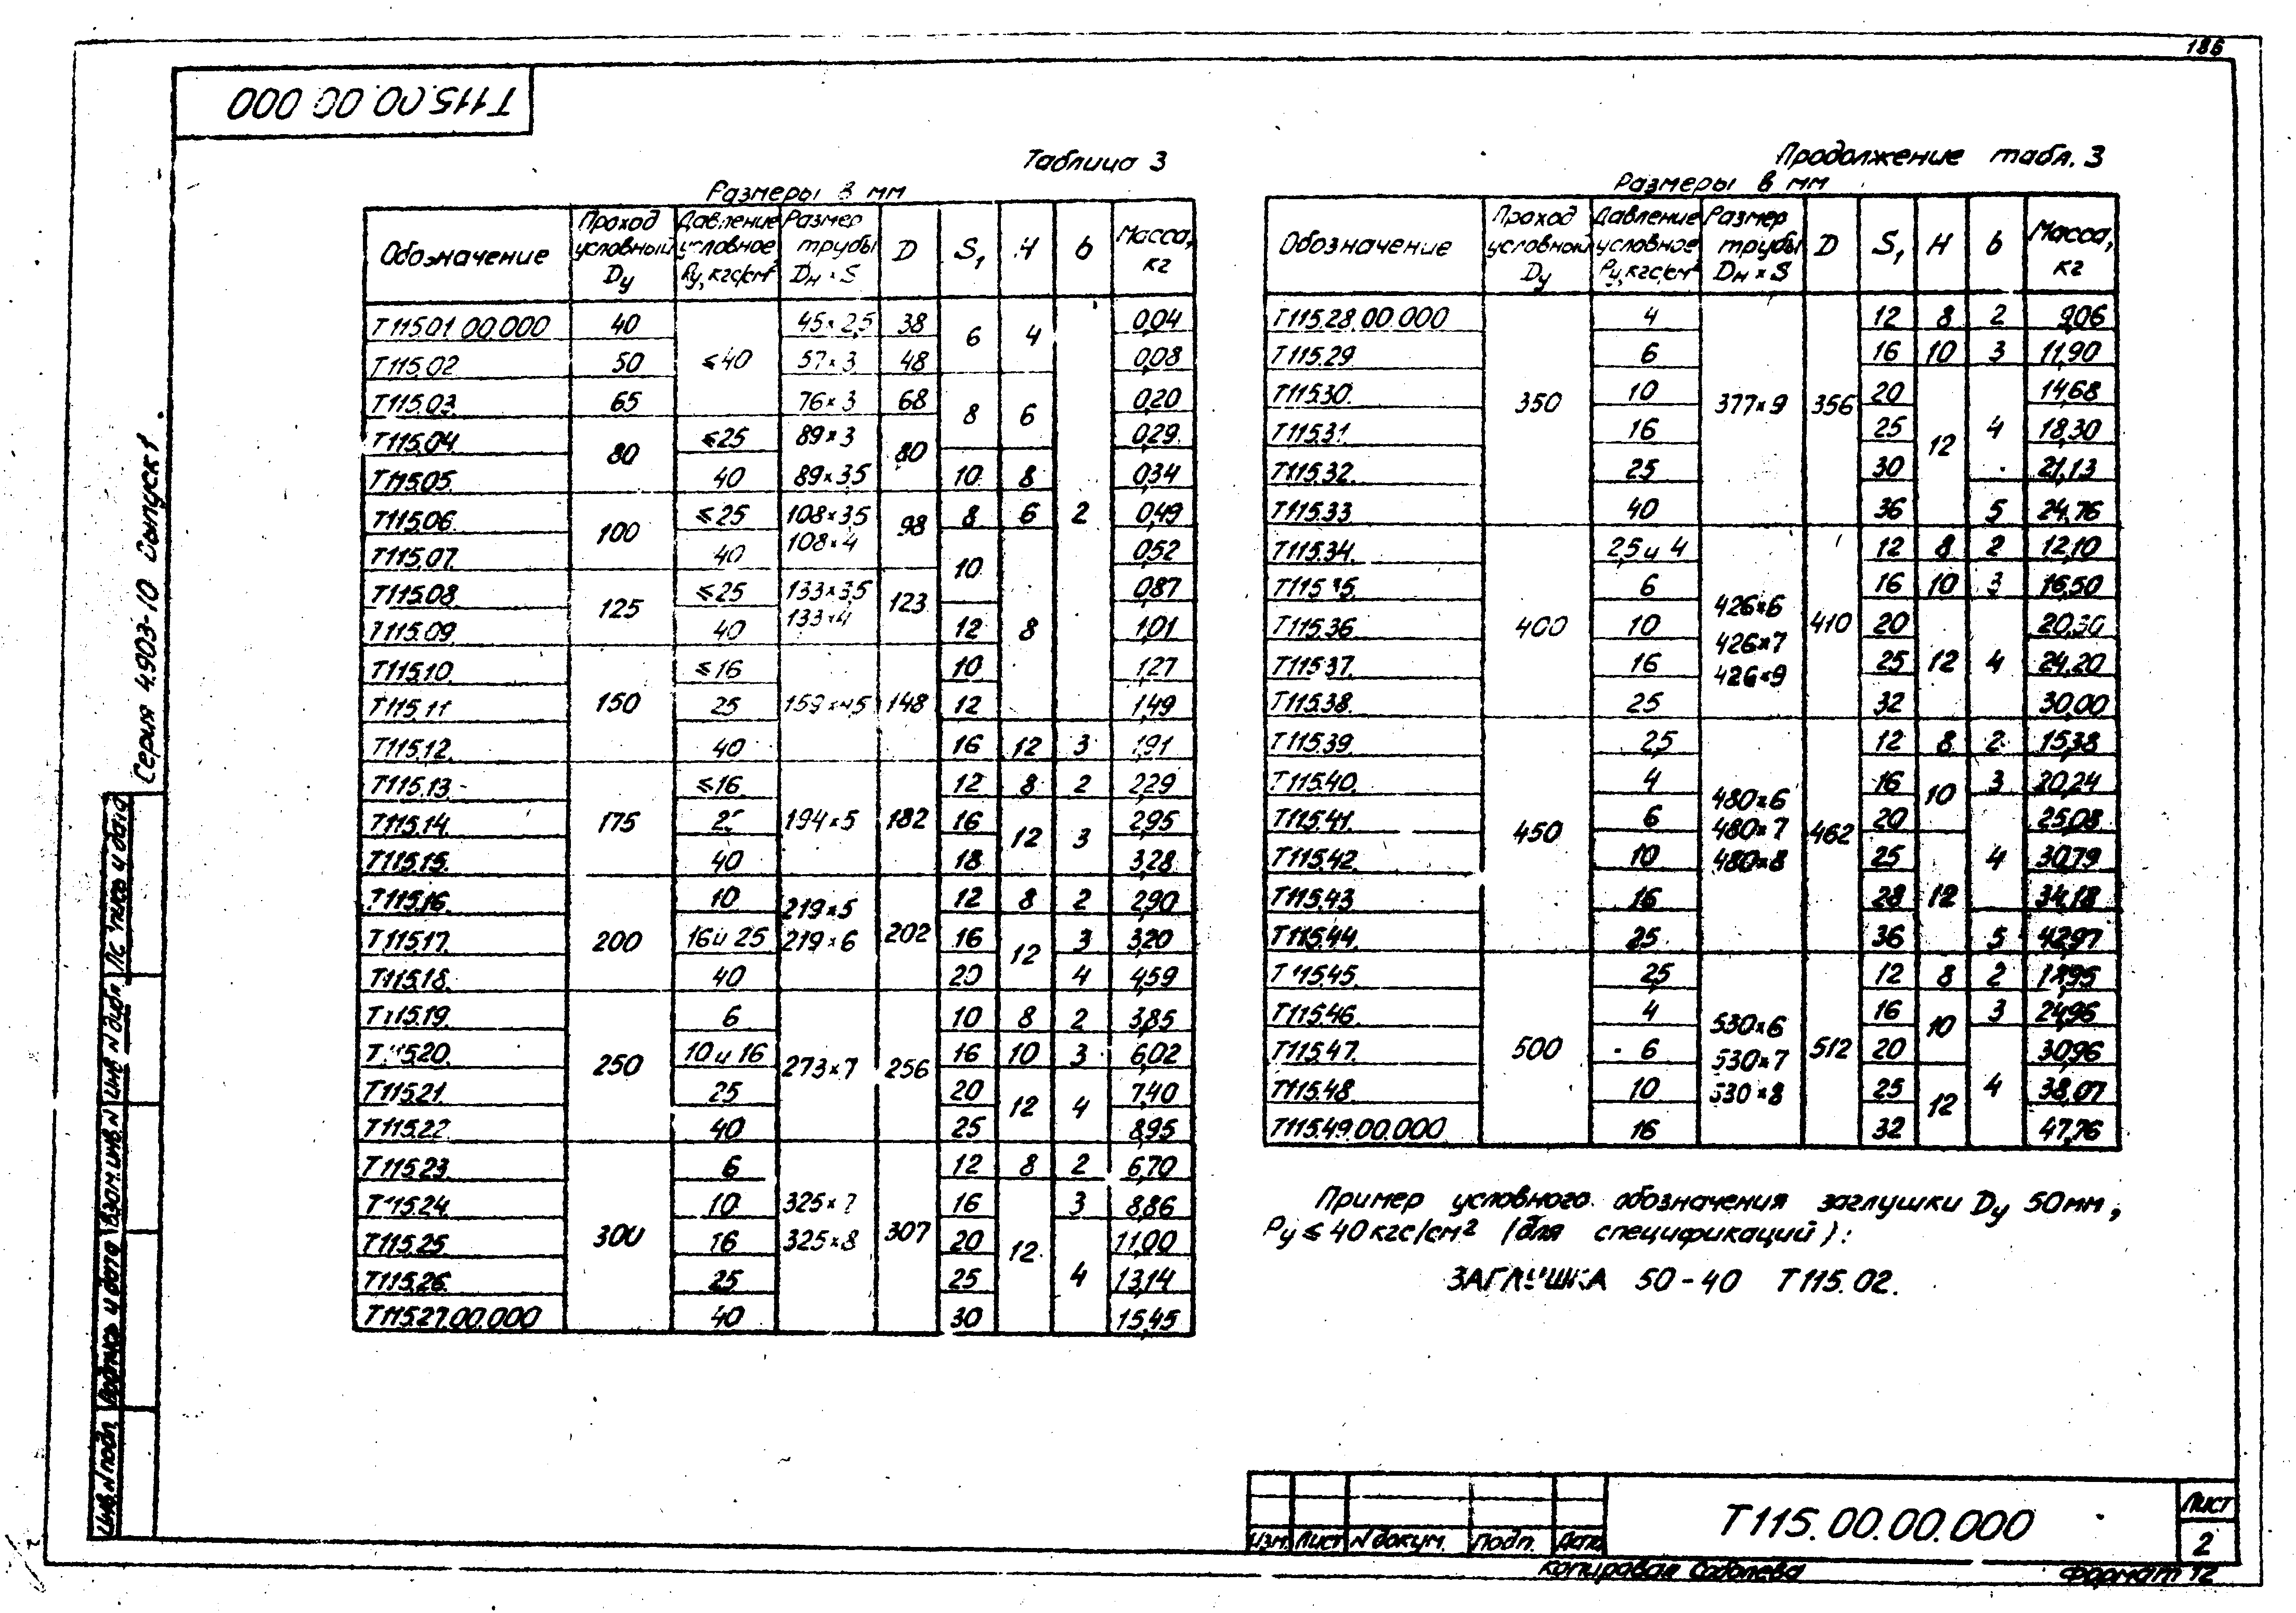 186
Т115.00.00.000
Таблица 3
Размеры в мм
Обозначение | Проход условный Dу | Давление условное Ру, кгс/см² | Размер трубы Dн × S | D | S₁ | H | b | Масса, кг
Т115.01.00.000 | 40 | ≤40 | 45×2,5 | 38 | 6 | 4 | 2 | 0,04
Т115.02. | 50 | 57×3 | 48 | 0,08
Т115.03. | 65 | 76×3 | 68 | 8 | 6 | 0,20
Т115.04. | 80 | ≤25 | 89×3 | 80 | 0,29
Т115.05. | 40 | 89×3,5 | 10 | 8 | 0,34
Т115.06. | 100 | ≤25 | 108×3,5 | 98 | 8 | 6 | 0,49
Т115.07. | 40 | 108×4 | 10 | 8 | 0,52
Т115.08. | 125 | ≤25 | 133×3,5 | 123 | 0,87
Т115.09. | 40 | 133×4 | 12 | 1,01
Т115.10. | 150 | ≤16 | 159×4,5 | 148 | 10 | 1,27
Т115.11 | 25 | 12 | 1,49
Т115.12. | 40 | 16 | 12 | 3 | 1,91
Т115.13. | 175 | ≤16 | 194×5 | 182 | 12 | 8 | 2 | 2,29
Т115.14. | 25 | 16 | 12 | 3 | 2,95
Т115.15. | 40 | 18 | 3,28
Т115.16. | 200 | 10 | 219×5 | 202 | 12 | 8 | 2 | 2,90
Т115.17. | 16 и 25 | 219×6 | 16 | 12 | 3 | 3,20
Т115.18. | 40 | 20 | 4 | 4,59
Т115.19. | 250 | 6 | 273×7 | 256 | 10 | 8 | 2 | 3,85
Т115.20. | 10 и 16 | 16 | 10 | 3 | 6,02
Т115.21. | 25 | 20 | 12 | 4 | 7,40
Т115.22. | 40 | 25 | 8,95
Т115.23. | 300 | 6 | 325×7 | 307 | 12 | 8 | 2 | 6,70
Т115.24. | 10 | 325×8 | 16 | 12 | 3 | 8,86
Т115.25 | 16 | 20 | 4 | 11,00
Т115.26. | 25 | 25 | 13,14
Т115.27.00.000 | 40 | 30 | 15,45
Продолжение табл. 3
Размеры в мм
Обозначение | Проход условный Dу | Давление условное Ру, кгс/см² | Размер трубы Dн × S | D | S₁ | H | b | Масса, кг
Т115.28.00.000 | 350 | 4 | 377×9 | 356 | 12 | 8 | 2 | 9,06
Т115.29. | 6 | 16 | 10 | 3 | 11,90
Т115.30. | 10 | 20 | 12 | 4 | 14,68
Т115.31. | 16 | 25 | 18,30
Т115.32. | 25 | 30 | 21,13
Т115.33. | 40 | 36 | 5 | 24,76
Т115.34. | 400 | 2,5 и 4 | 426×6 | 410 | 12 | 8 | 2 | 12,10
Т115.35. | 6 | 426×7 | 16 | 10 | 3 | 16,50
Т115.36. | 10 | 426×9 | 20 | 12 | 4
Т115.37. | 16 | 25 | 24,20
Т115.38. | 25 | 32 | 30,00
Т115.39. | 450 | 2,5 | 480×6 | 462 | 12 | 8 | 2 | 15,38
Т115.40. | 4 | 480×7 | 16 | 10 | 3 | 20,24
Т115.41. | 6 | 480×8 | 20 | 4 | 25,08
Т115.42. | 10 | 25 | 12 | 30,79
Т115.43. | 16 | 28 | 34,18
Т115.44. | 25 | 36 | 5 | 42,97
Т115.45. | 500 | 2,5 | 530×6 | 512 | 12 | 8 | 2
Т115.46. | 4 | 530×7 | 16 | 10 | 3 | 24,96
Т115.47. | 6 | 530×8 | 20 | 4 | 30,96
Т115.48. | 10 | 25 | 12 | 38,07
Т115.49.00.000 | 16 | 32 | 47,76
Пример условного обозначения заглушки Dу 50 мм,
Ру ≤ 40 кгс/см² (для спецификаций):
ЗАГЛУШКА 50-40 Т115.02.
Серия 4.903-10 Выпуск 1
Инв. N подл. Подпись и дата Взам. инв. N Инв. N дубл. Подпись и дата
Изм. Лист N докум. Подп. Дата
Т115.00.00.000
Лист
2
Копировал Соболева
Формат 12